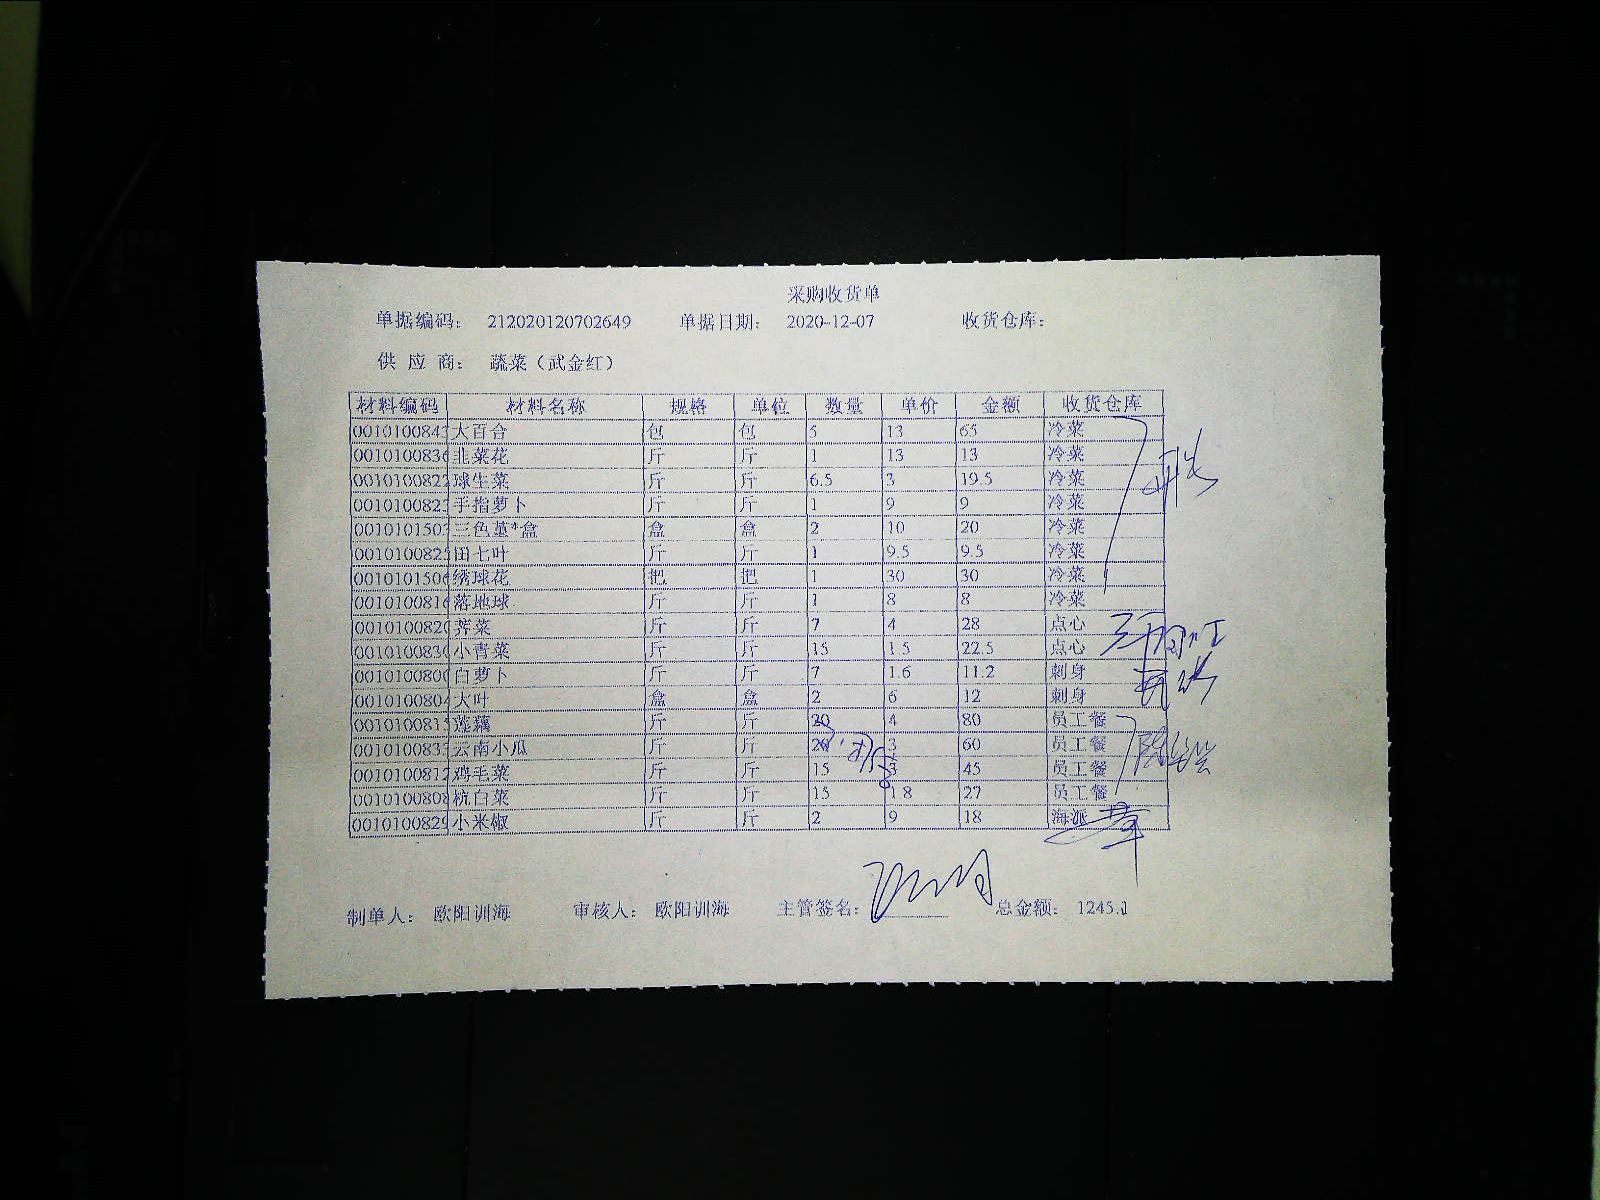 采购收货单
单据编码： 212020120702649 单据日期： 2020-12-07 收货仓库：
供 应 商： 蔬菜（武金红）
材料编码 材料名称 规格 单位 数量 单价 金额 收货仓库
001010084 大百合 包 包 5 13 65 冷菜
001010083 韭菜花 斤 斤 1 13 13 冷菜
001010082 球生菜 斤 斤 6.5 3 19.5 冷菜
001010082 手指萝卜 斤 斤 1 9 9 冷菜
001010150 三色堇*盒 盒 盒 2 10 20 冷菜
001010082 田七叶 斤 斤 1 9.5 9.5 冷菜
001010150 绣球花 把 把 1 30 30 冷菜
001010081 落地球 斤 斤 1 8 8 冷菜
001010082 荠菜 斤 斤 7 4 28 点心
001010083 小青菜 斤 斤 15 1.5 22.5 点心
001010080 白萝卜 斤 斤 7 1.6 11.2 刺身
001010080 大叶 盒 盒 2 6 12 刺身
001010081 莲藕 斤 斤 20 4 80 员工餐
001010083 云南小瓜 斤 斤 20 3 60 员工餐
001010081 鸡毛菜 斤 斤 15 3 45 员工餐
001010080 杭白菜 斤 斤 15 1.8 27 员工餐
001010082 小米椒 斤 斤 2 9 18 海派
制单人： 欧阳训海 审核人： 欧阳训海 主管签名： 总金额： 1245.1